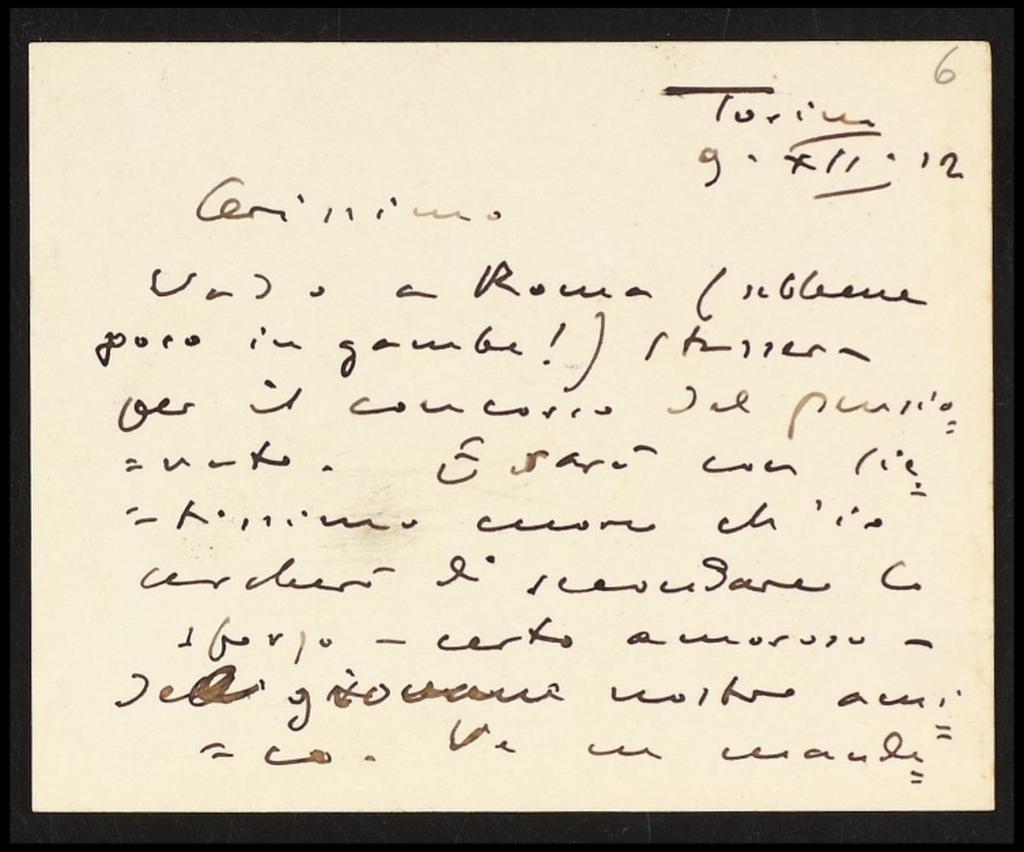 6
Torino
9. XII. 12
Carissimo
Vado a Roma (sebbene
poco in gambe!) stassera
per il concorso del pensio=
=nato. E sarà con lie=
=tissimo cuore ch'io
cercherò di secondare lo
sforzo - certo amoroso -
del giovane nostro ami=
=co. Ve